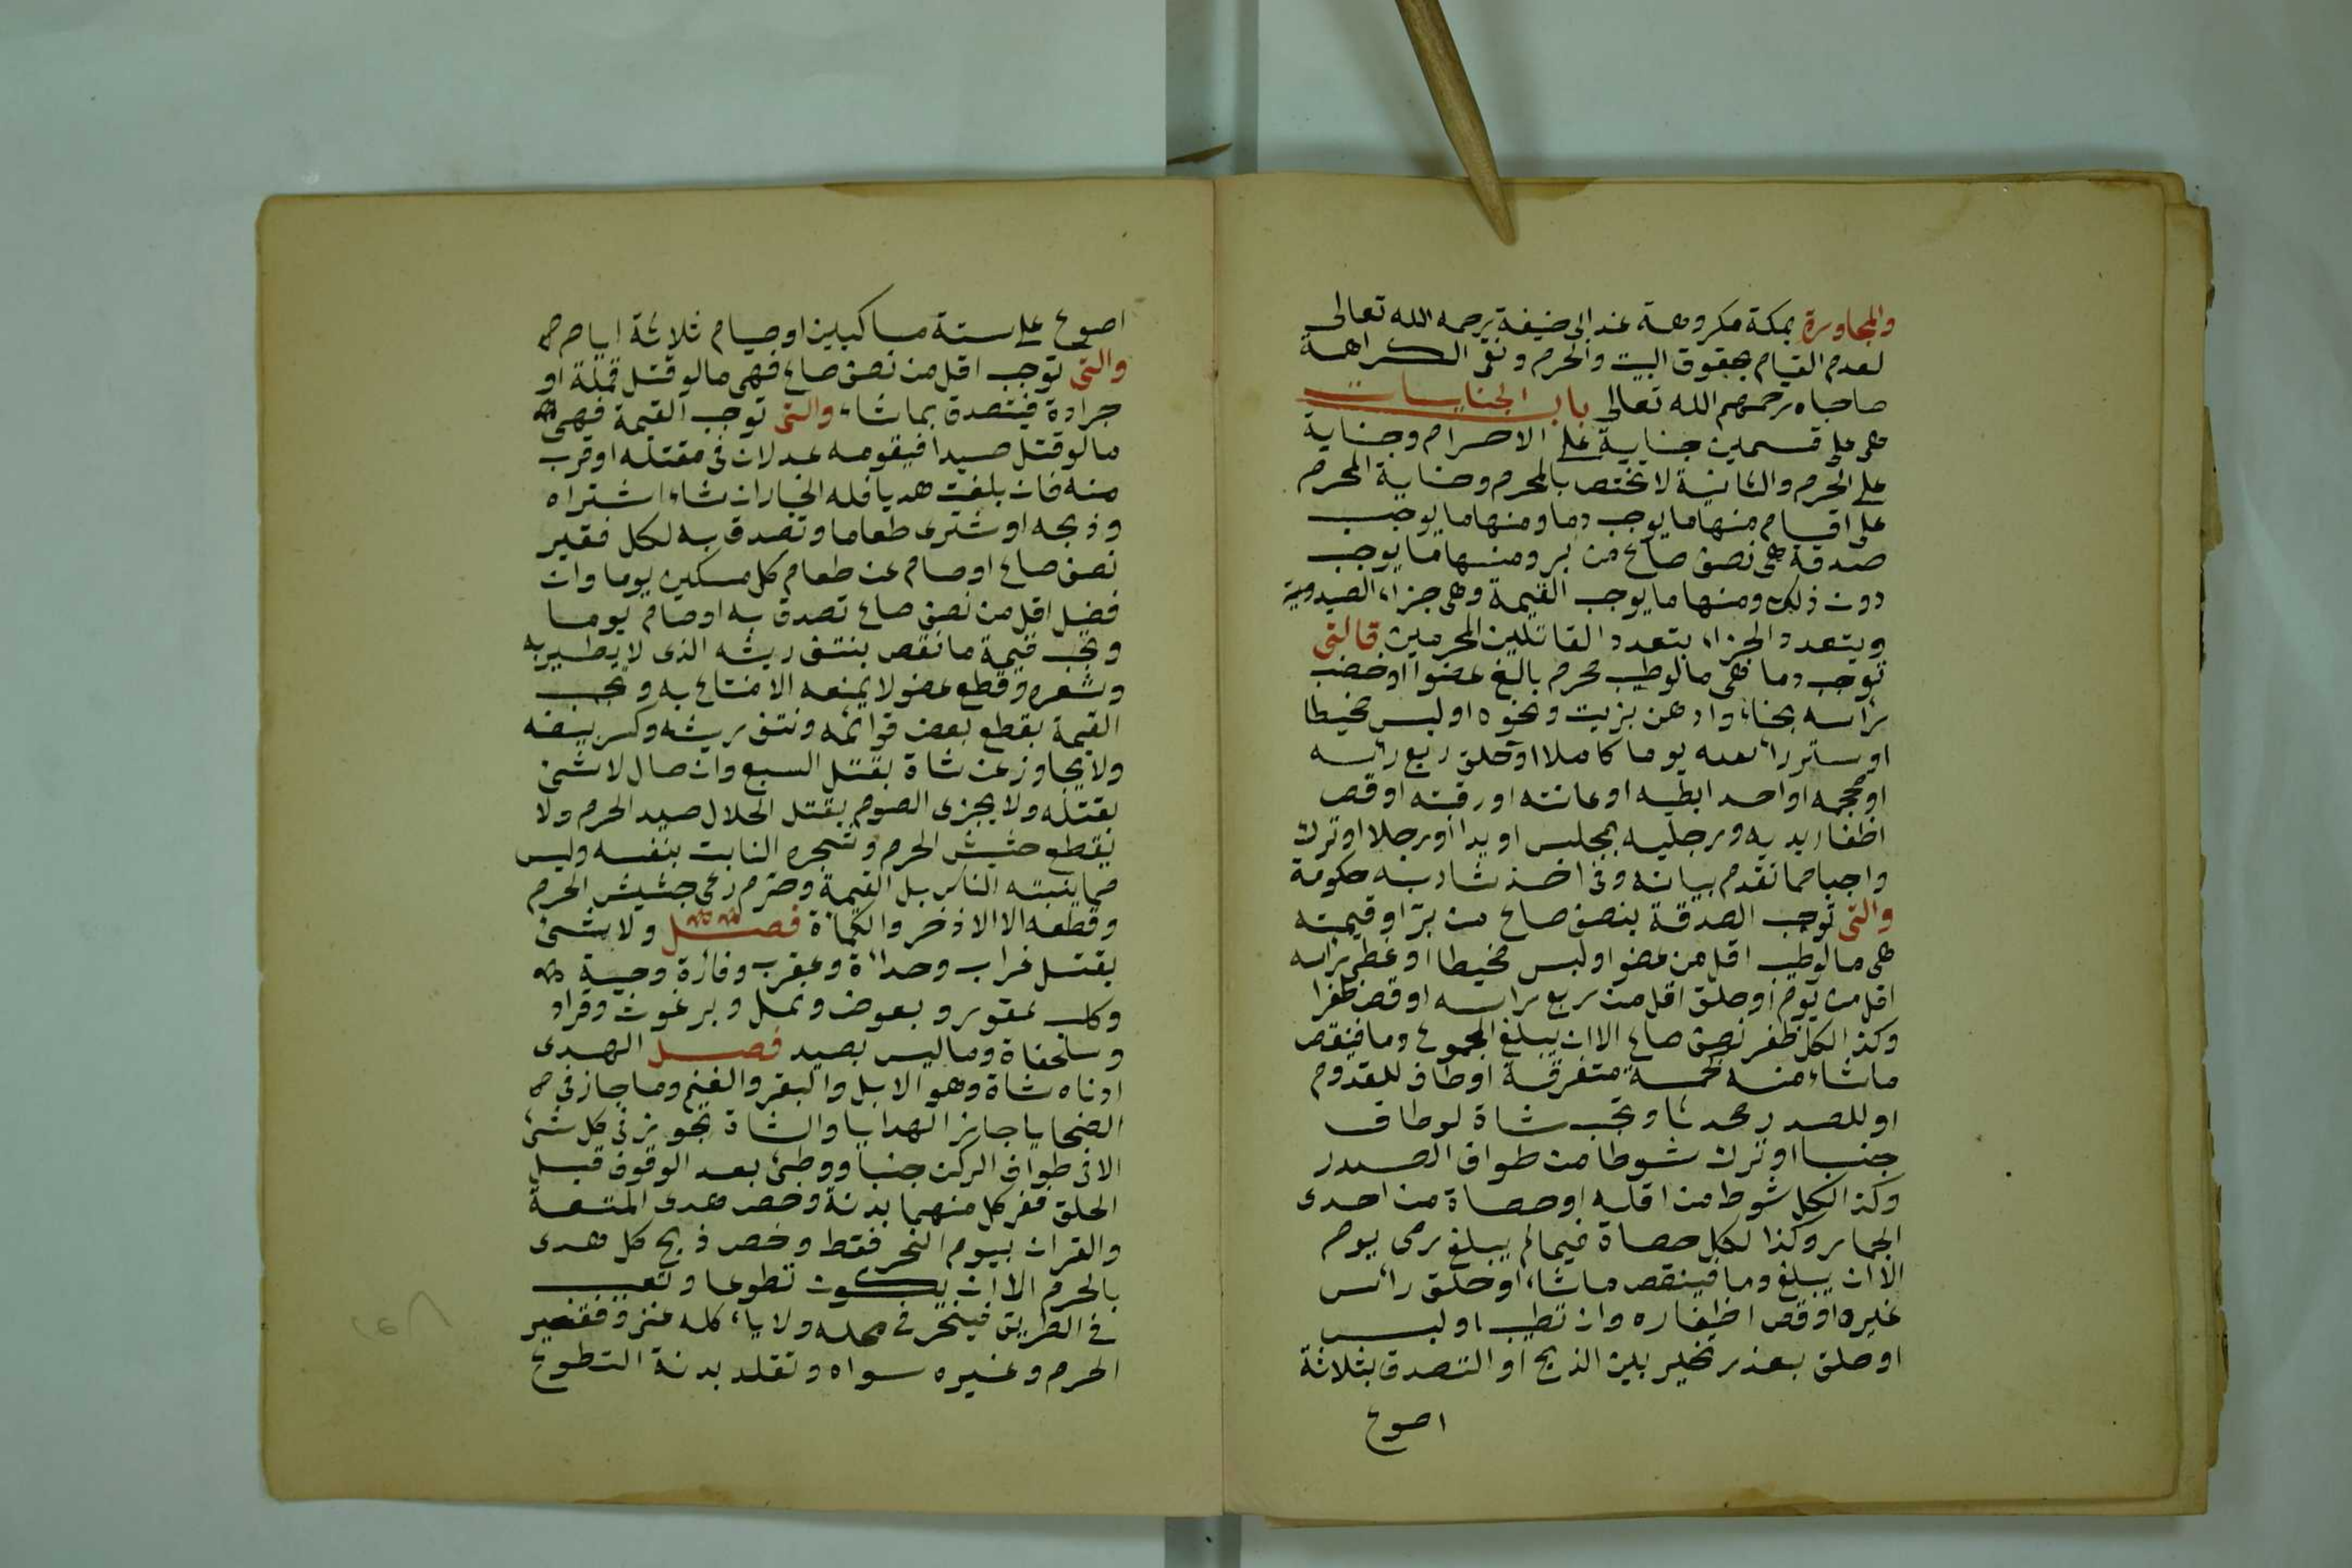 والمجاورة بمكة مكروهة عند ابى حنيفة رحمه الله تعالى
لعدم القيام بحقوق البيت والحرم ونفى الكراهة
صاحباه رحمهم الله تعالى باب الجنايات
هى على قسمين جناية على الاحرام وجناية
على الحرم والثانية لا تختص بالمحرم وجناية المحرم
على اقسام منها ما يوجب دما ومنها ما يوجب
صدقة هى نصف صاع من بر ومنها ما يوجب
دون ذلك ومنها ما يوجب القيمة وهى جزاء الصيد
ويتعدد الجزاء بتعدد القاتلين المحرمين فالتى
توجب دما هى ما لو طيب محرم بالغ عضوا او خضب
راسه بحناء وادهن بزيت ونحوه او لبس مخيطا
او ستر راسه يوما كاملا او حلق ربع راسه
او محجمه او احد ابطيه او عانته او رقبته او قص
اظفار يديه ورجليه بمجلس او يدا او رجلا او ترك
واجبا مما تقدم بيانه وفى اخذ شاربه حكومة
والتى توجب الصدقة بنصف صاع من بر او قيمته
هى ما لو طيب اقل من عضو او لبس مخيطا او غطى راسه
اقل من يوم او حلق اقل من ربع راسه او قص ظفرا
وكذا لكل ظفر نصف صاع الا ان يبلغ المجموع دما فينقص
ما شاء منه كخمسة متفرقة او طاف للقدوم
او للصدر محدثا وتجب شاة لو طاف
جنبا او ترك شوطا من طواف الصدر
وكذا لكل شوط من اقله او حصاة من احدى
الجمار وكذا لكل حصاة فيما لم يبلغ رمى يوم
الا ان يبلغ دما فينقص ما شاء او حلق رأس
غيره او قص اظفاره وان تطيب او لبس
او حلق بعذر تخير بين الذبح او التصدق بثلاثة
اصوع
اصوع على ستة مساكين او صيام ثلاثة ايام
والتى توجب اقل من نصف صاع فهى ما لو قتل قملة او
جرادة فيتصدق بما شاء والتى توجب القيمة فهى
ما لو قتل صيدا فيقومه عدلان فى مقتله او قرب
منه فان بلغت هديا فله الخيار ان شاء اشتراه
وذبحه او شترى طعاما وتصدق به لكل فقير
نصف صاع او صام عن طعام كل مسكين يوما وان
فضل اقل من نصف صاع تصدق به او صام يوما
وتجب قيمة ما نقص بنتف ريشه الذى لا يطير به
وشعره وقطع عضو لا يمنعه الامتناع به وتجب
القيمة بقطع بعض قوائمه ونتف ريشه وكسر بيضه
ولا يجاوز عن شاة بقتل السبع وان صال لا شئ
بقتله ولا يجزى الصوم بقتل الحلال صيد الحرم ولا
بقطع حشيش الحرم وشجره النابت بنفسه وليس
مما ينبته الناس بل القيمة وحرم رعى حشيش الحرم
وقطعه الا الاذخر والكمأة فصل ولا شئ
بقتل غراب وحدأة وعقرب وفارة وحية
وكلب عقور وبعوض ونمل وبرغوث وقراد
وسلحفاة وما ليس بصيد فصل الهدى
ادناه شاة وهو الابل والبقر والغنم وما جاز فى
الضحايا جاز الهدايا والشاة تجوز فى كل شئ
الا فى طواف الركن جنبا ووطئ بعد الوقوف قبل
الحلق ففى كل منهما بدنة وخص هدى المتعة
والقران بيوم النحر فقط وخص ذبح كل هدى
بالحرم الا ان يكون تطوعا وتعيب
فى الطريق فينحر فى محله ولا ياكله غنى وفقير
الحرم وغيره سواه وتقلد بدنة التطوع